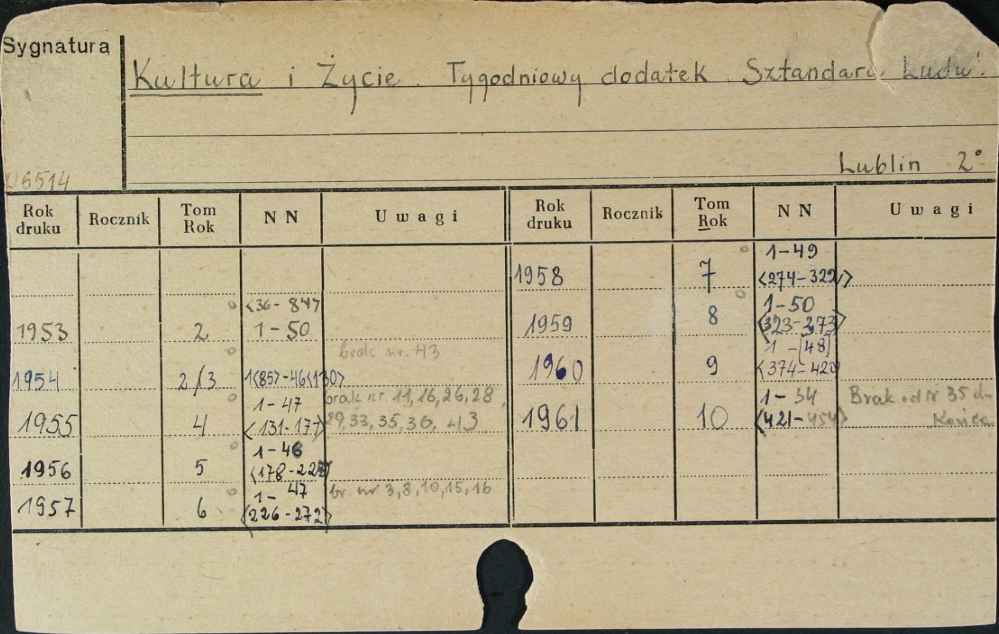 Sygnatura
Kultura i Życie. Tygodniowy dodatek Sztandaru Ludu.
Lublin 2°
U6514
Rok druku Rocznik Tom Rok N N Uwagi Rok druku Rocznik Tom Rok N N Uwagi
1953 2 <36-84> 1-50
1954 2/3 1<85>-46<130> brak nr. 43
1955 4 1-47 <131-177> brak nr 11, 16, 26, 28, 29, 33, 35, 36, 43
1956 5 1-48
1957 6 1-47 <226-272> br. nr 3, 8, 10, 15, 16
1958 7 1-49 <274-322>
1959 8 1-50 <323-373>
1960 9 1-[48] <374-420>
1961 10 1-34 <421-454> Brak od Nr 35 do Końca